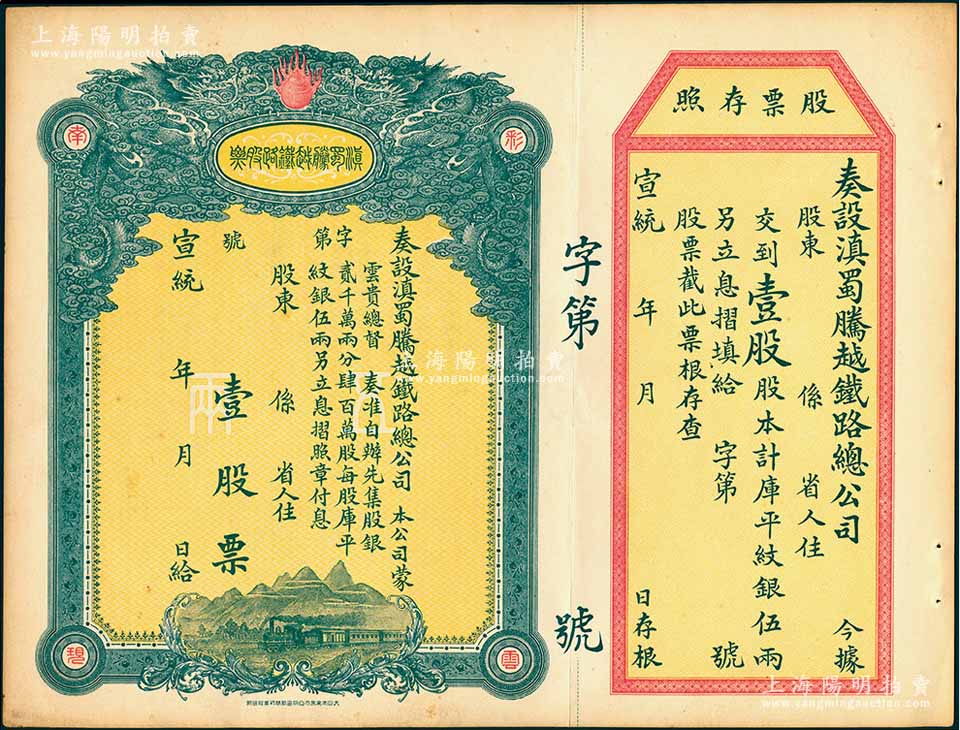 上海陽明拍賣
www.yangmingauction.com
股票存照
奏設滇蜀騰越鐵路總公司 今據
股東 係 省人住
交到壹股股本計庫平紋銀伍兩
另立息摺填給 字第 號
股票截此票根存查
宣統 年 月 日存根
字第 號
彩
雲
南
現
滇蜀騰越鐵路股票
奏設滇蜀騰越鐵路總公司 本公司蒙
雲貴總督 奏准自辦先集股銀
貳千萬兩分肆百萬股每股庫平
紋銀伍兩另立息摺照章付息
字第
股東 係 省人住
號
壹股票
宣統 年 月 日給
伍兩
上海陽明拍賣
www.yangmingauction.com
上海陽明拍賣
www.yangmingauction.com